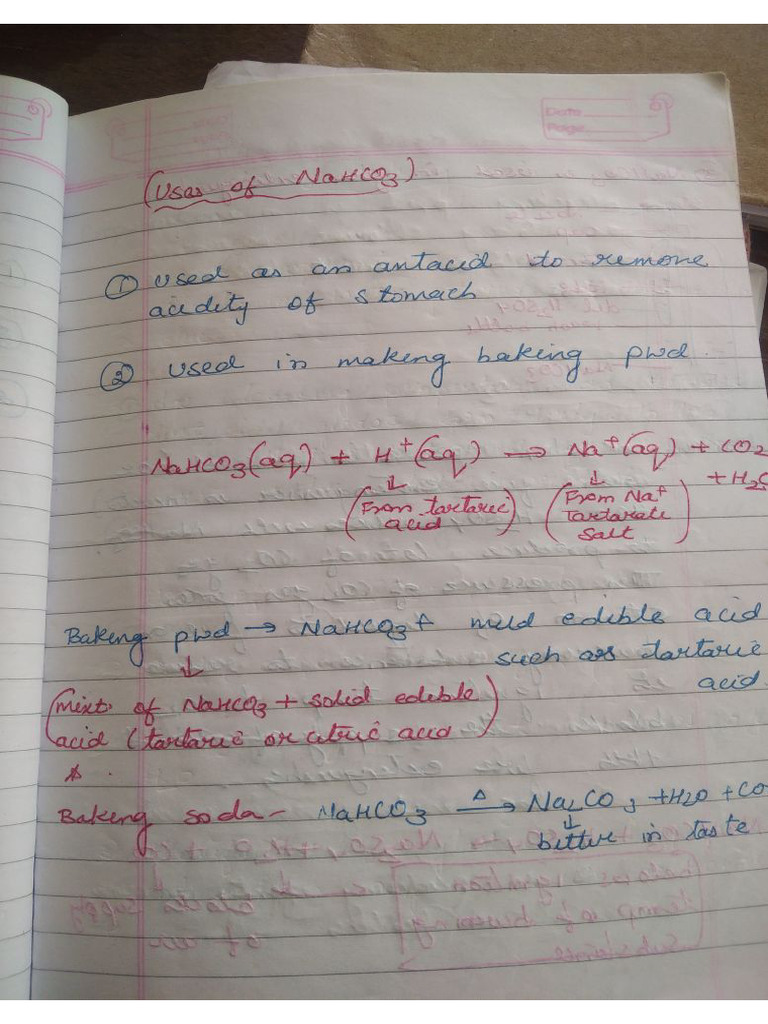 Date
Page
(Uses of NaHCO3)
① Used as an antacid to remove
acidity of stomach
② Used in making baking pwd.
NaHCO3(aq) + H+(aq) → Na+(aq) + CO2
+ H2O
↓ ↓
(From tartaric acid) (From Na+ Tartarate Salt)
Baking pwd → NaHCO3 + mild edible acid
such as tartaric
acid.
↓
(Mixt. of NaHCO3 + solid edible
acid (tartaric or citric acid)
Baking soda - NaHCO3 △→ Na2CO3 + H2O + CO
↓
bitter in taste